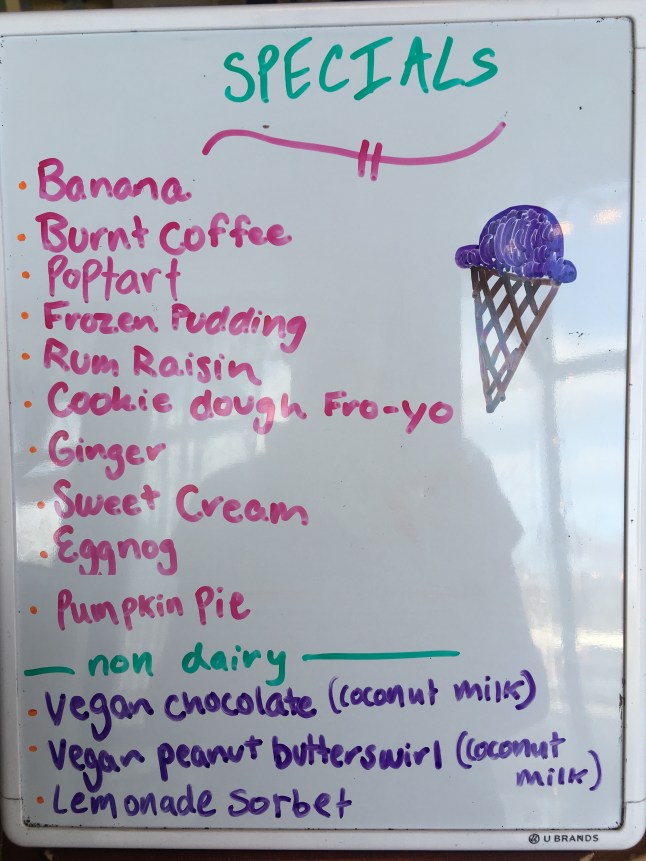 SPECIALS
Banana
Burnt Coffee
Poptart
Frozen Pudding
Rum Raisin
Cookie dough Fro-yo
Ginger
Sweet Cream
Eggnog
Pumpkin Pie
non dairy
Vegan chocolate (coconut milk)
Vegan peanut butterswirl (coconut
milk)
Lemonade Sorbet
U BRANDS